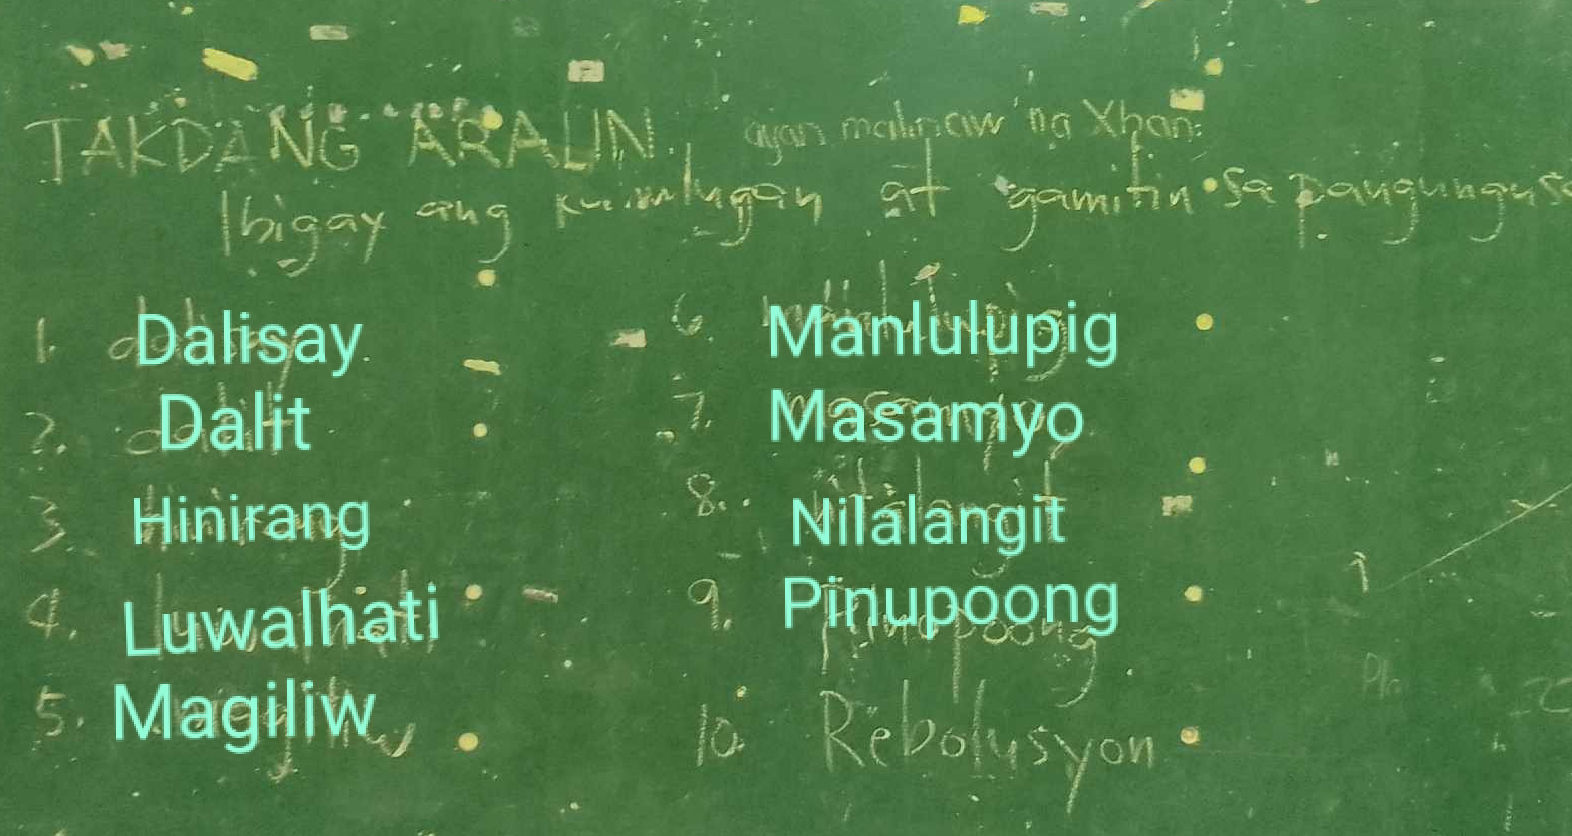 TAKDANG ARALIN. ayan malinaw na Xhan:
Ibigay ang kasulugan at gamitin sa pangungusa
1. Dalisay
2. Dalit
3. Hinirang
4. Luwalhati
5. Magiliw
6. Manlulupig
7. Masamyo
8. Nilalangit
9. Pinupoong
10. Rebolusyon